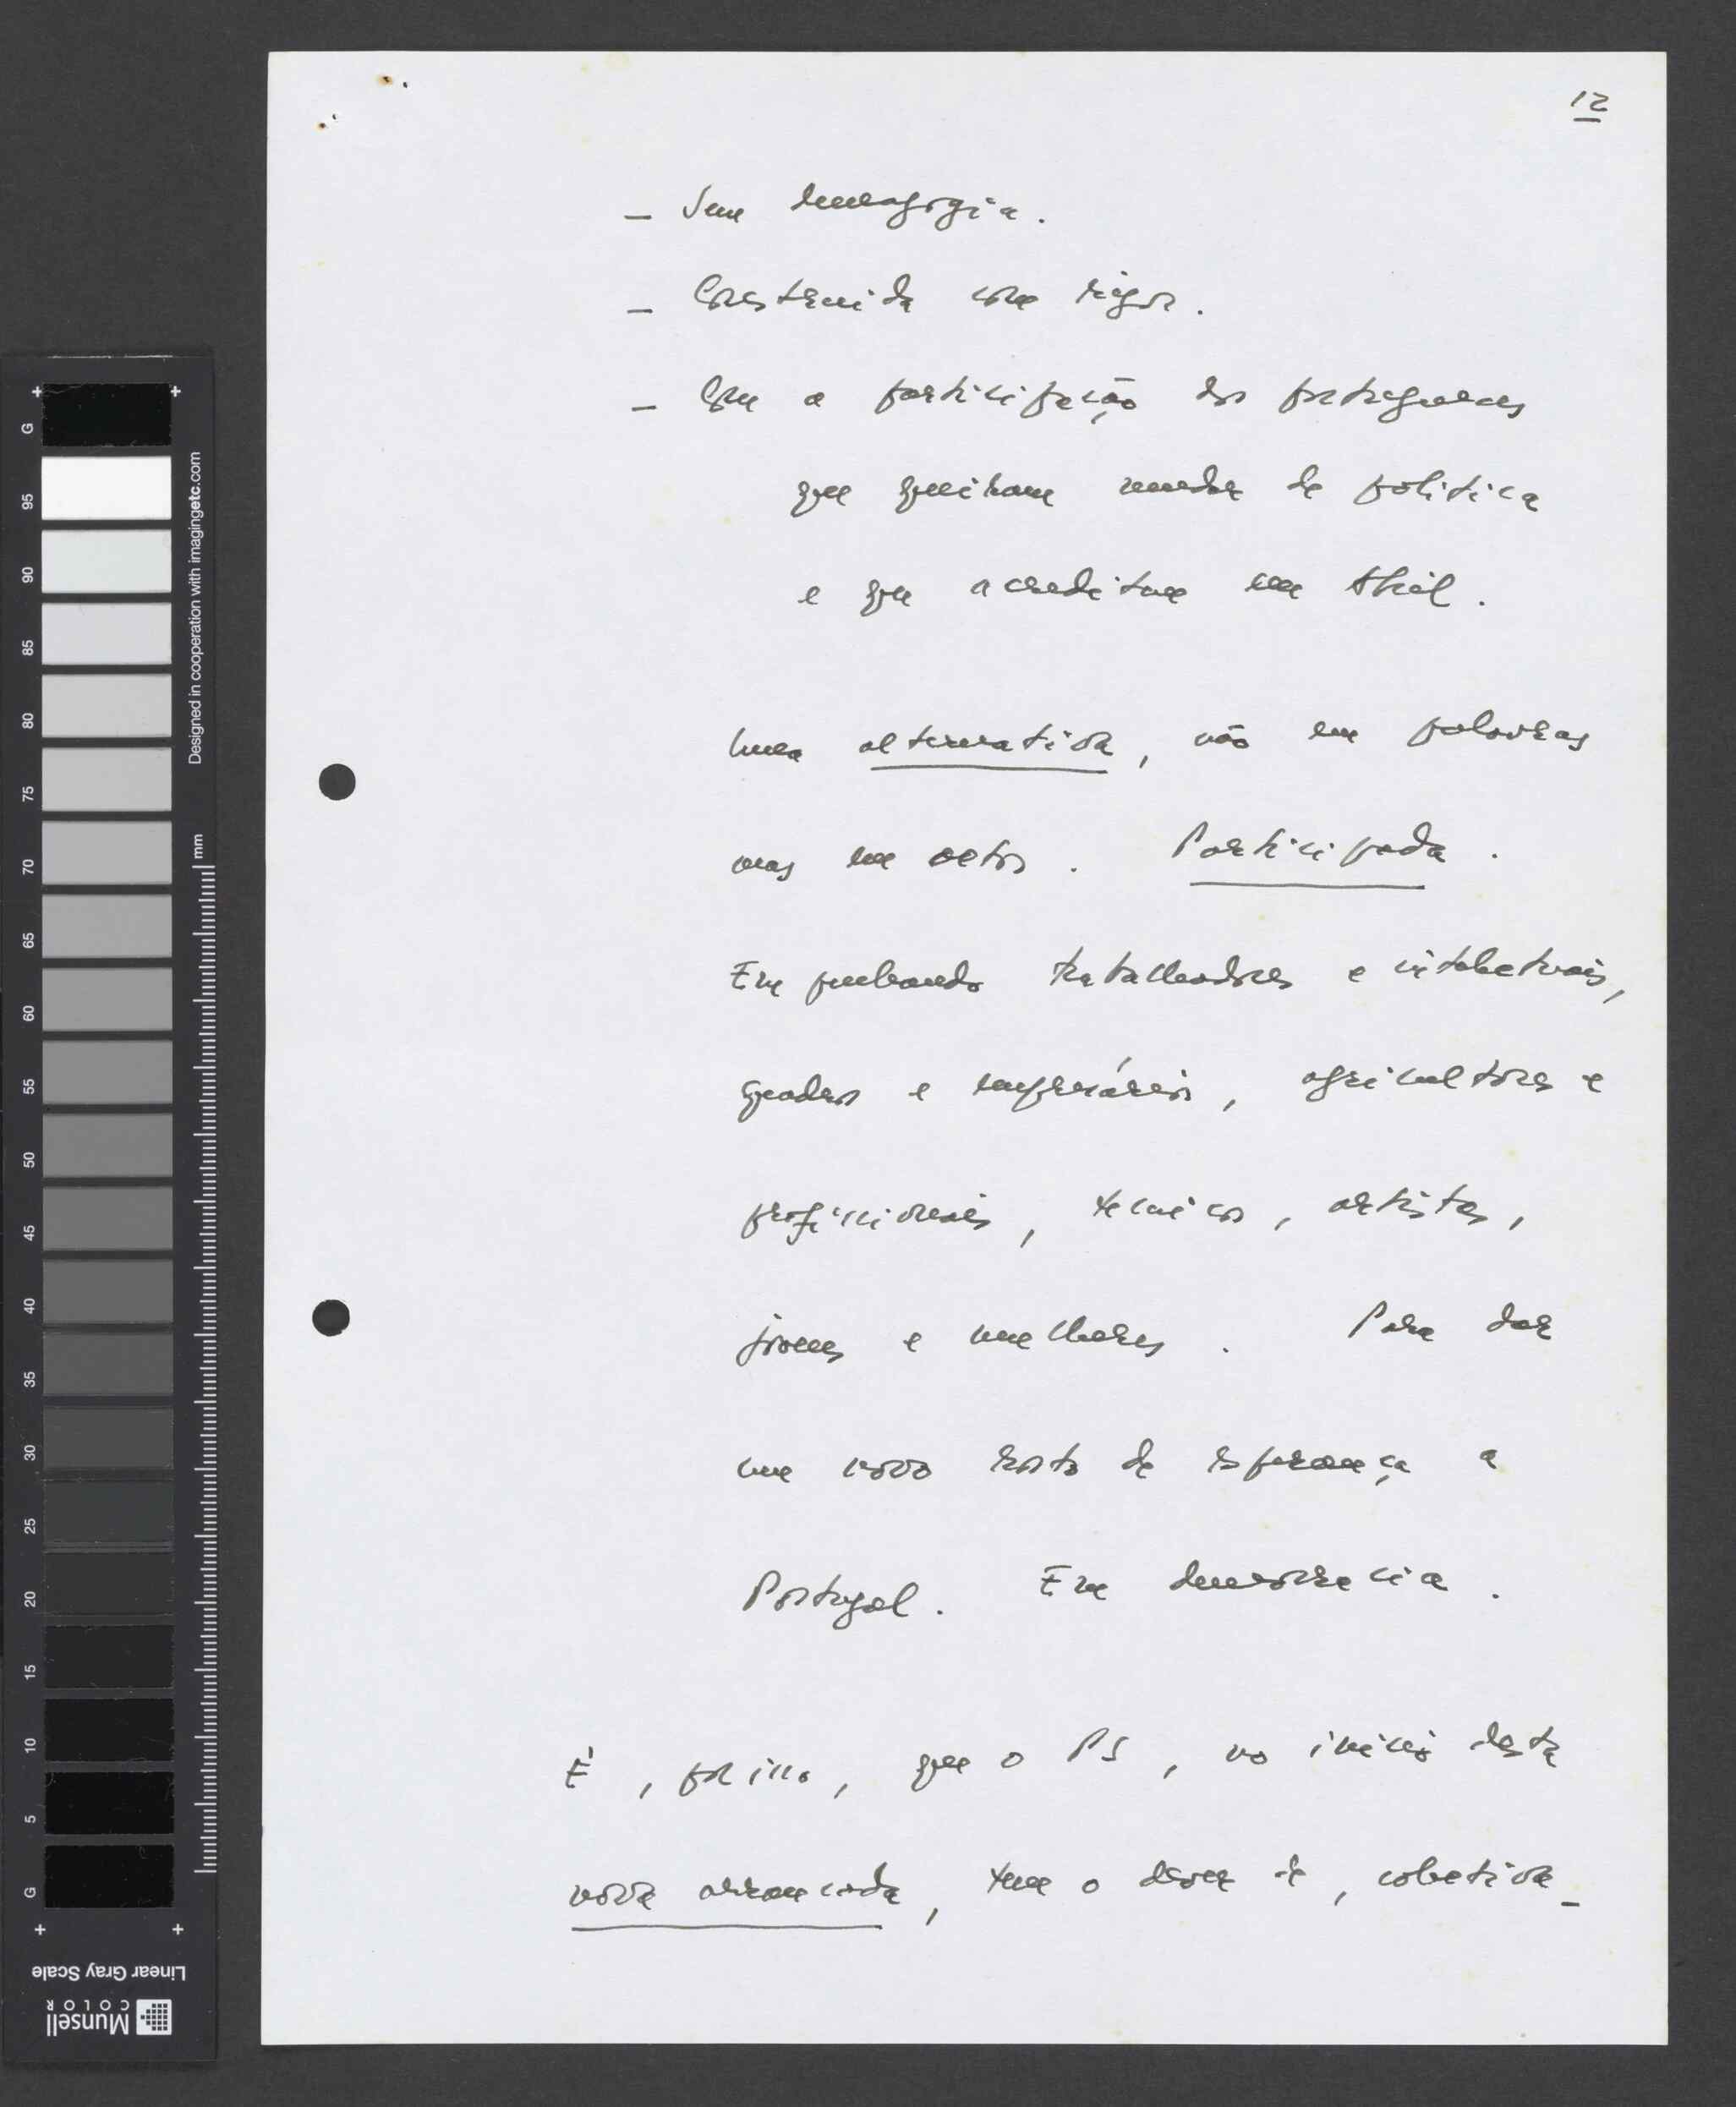 12
- Sem demagogia.
- Construida com rigor.
- Com a participação dos portugueses
que queiram mudar de politica
e que acreditam em Abril.
Uma alternativa, não em palavras
mas em actos. Participada.
Empenhando trabalhadores e intelectuais,
quadros e empresários, agricultores e
profissionais, técnicos, artistas,
jovens e mulheres. Para dar
um novo rosto de esperança a
Portugal. Em democracia.
É, por isso, que o PS, no início desta
nova arrancada, tem o dever de, colectiva-
G 95 90 85 80 75 70 65 60 55 50 45 40 35 30 25 20 15 10 5 G
Designed in cooperation with imagingetc.com
mm
Linear Gray Scale
Munsell
COLOR